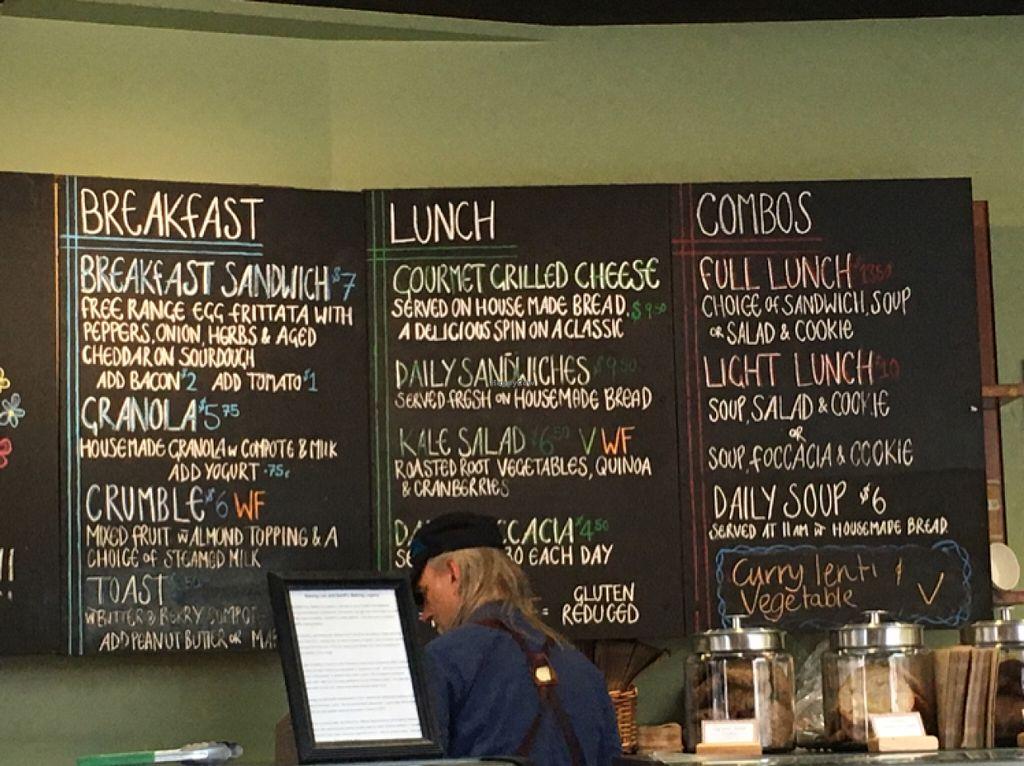 BREAKFAST
BREAKFAST SANDWICH $7
FREE RANGE EGG FRITTATA WITH
PEPPERS, ONION, HERBS & AGED
CHEDDAR ON SOURDOUGH
ADD BACON $2 ADD TOMATO $1
GRANOLA $5 75
HOUSEMADE GRANOLA W COMPOTE & MILK
ADD YOGURT .75¢
CRUMBLE $6 WF
MIXED FRUIT W ALMOND TOPPING & A
CHOICE OF STEAMED MILK
TOAST
W BUTTER & BERRY COMPOT
ADD PEANUT BUTTER OR
LUNCH
GOURMET GRILLED CHEESE
SERVED ON HOUSE MADE BREAD. $9 50
A DELICIOUS SPIN ON A CLASSIC
DAILY SANDWICHES $9.50
SERVED FRESH ON HOUSEMADE BREAD
KALE SALAD $6 50 V WF
ROASTED ROOT VEGETABLES, QUINOA
& CRANBERRIES
DA CCACIA $4 50
SE 30 EACH DAY
= GLUTEN
REDUCED
COMBOS
FULL LUNCH $13.50
CHOICE OF SANDWICH, SOUP
OR SALAD & COOKIE
LIGHT LUNCH $10
SOUP, SALAD & COOKIE
OR
SOUP, FOCCACIA & COOKIE
DAILY SOUP $6
SERVED AT 11AM W HOUSEMADE BREAD
Curry lentil
Vegetable V
!!